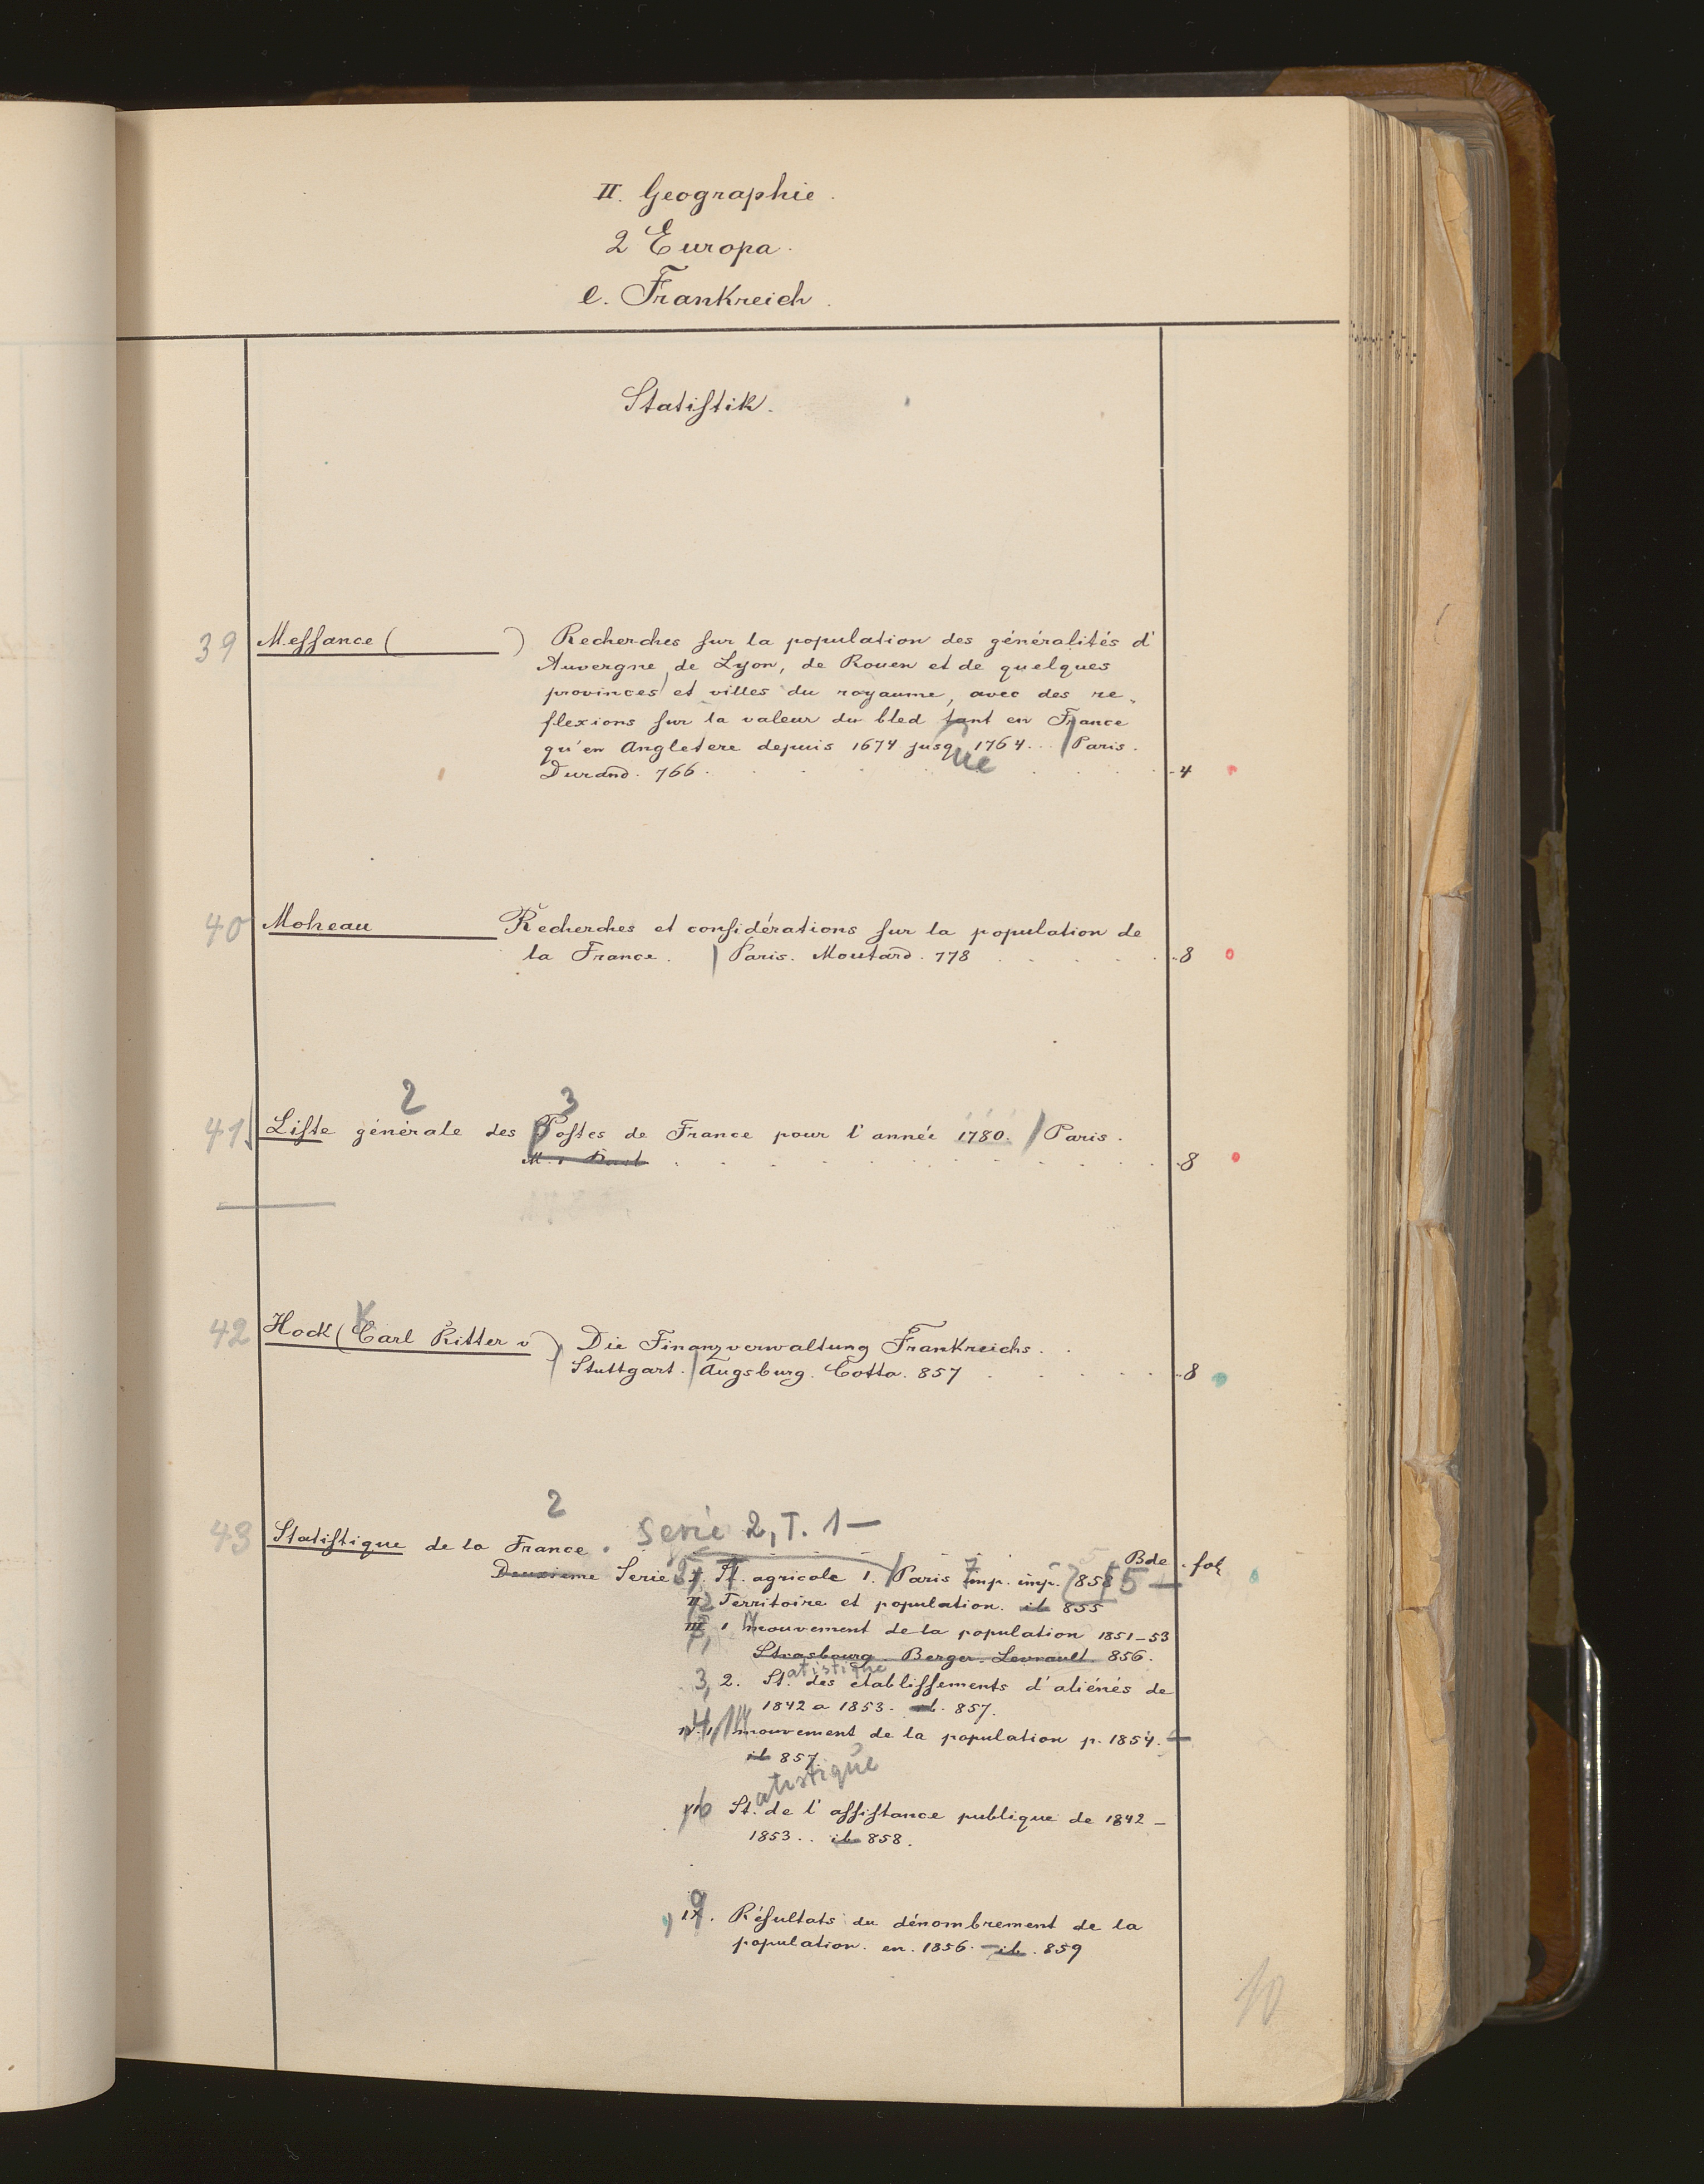 II. Geographie.
2 Europa.
e. Frankreich.
Statiſtik.
39 Meſſance ( ) Recherches ſur la population des généralités d'
Auvergne, de Lyon, de Rouen et de quelques
provinces et villes du royaume, avec des re-
flexions ſur la valeur du bled tant en France
qu'en Angletere depuis 1674 jusque 1764... / Paris.
Durand. 766. 4
40 Moheau Recherches et conſidérations ſur la population de
la France. | Paris. Moutard. 778 8
2 3
41 Liſte générale des Poſtes de France pour l'année 1780. / Paris.
8
42 Hock (Carl Ritter v) Die Finanzverwaltung Frankreichs.
K
Stuttgart. | Augsburg. Cotta. 857 8
2
43 Statiſtique de la France. Serie 2, T. 1—
Deuxieme Serie St. agricole 1. / Paris imp. imp. 858 Bde fol
II Territoire et population. ib 855
III 1 mouvement de la population 1851-53
Strasbourg. Berger-Levrault. 856.
atistique
3, 2. St. des établiſſements d'aliénés de
1842 a 1853. ib. 857.
IV. 1, mouvement de la population p. 1854.
ib 857.
atistique
VI 6 St. de l'aſſiſtance publique de 1842-
1853.. ib 858.
9
IX. Réſultats du dénombrement de la
population. en. 1856. ib. 859
10